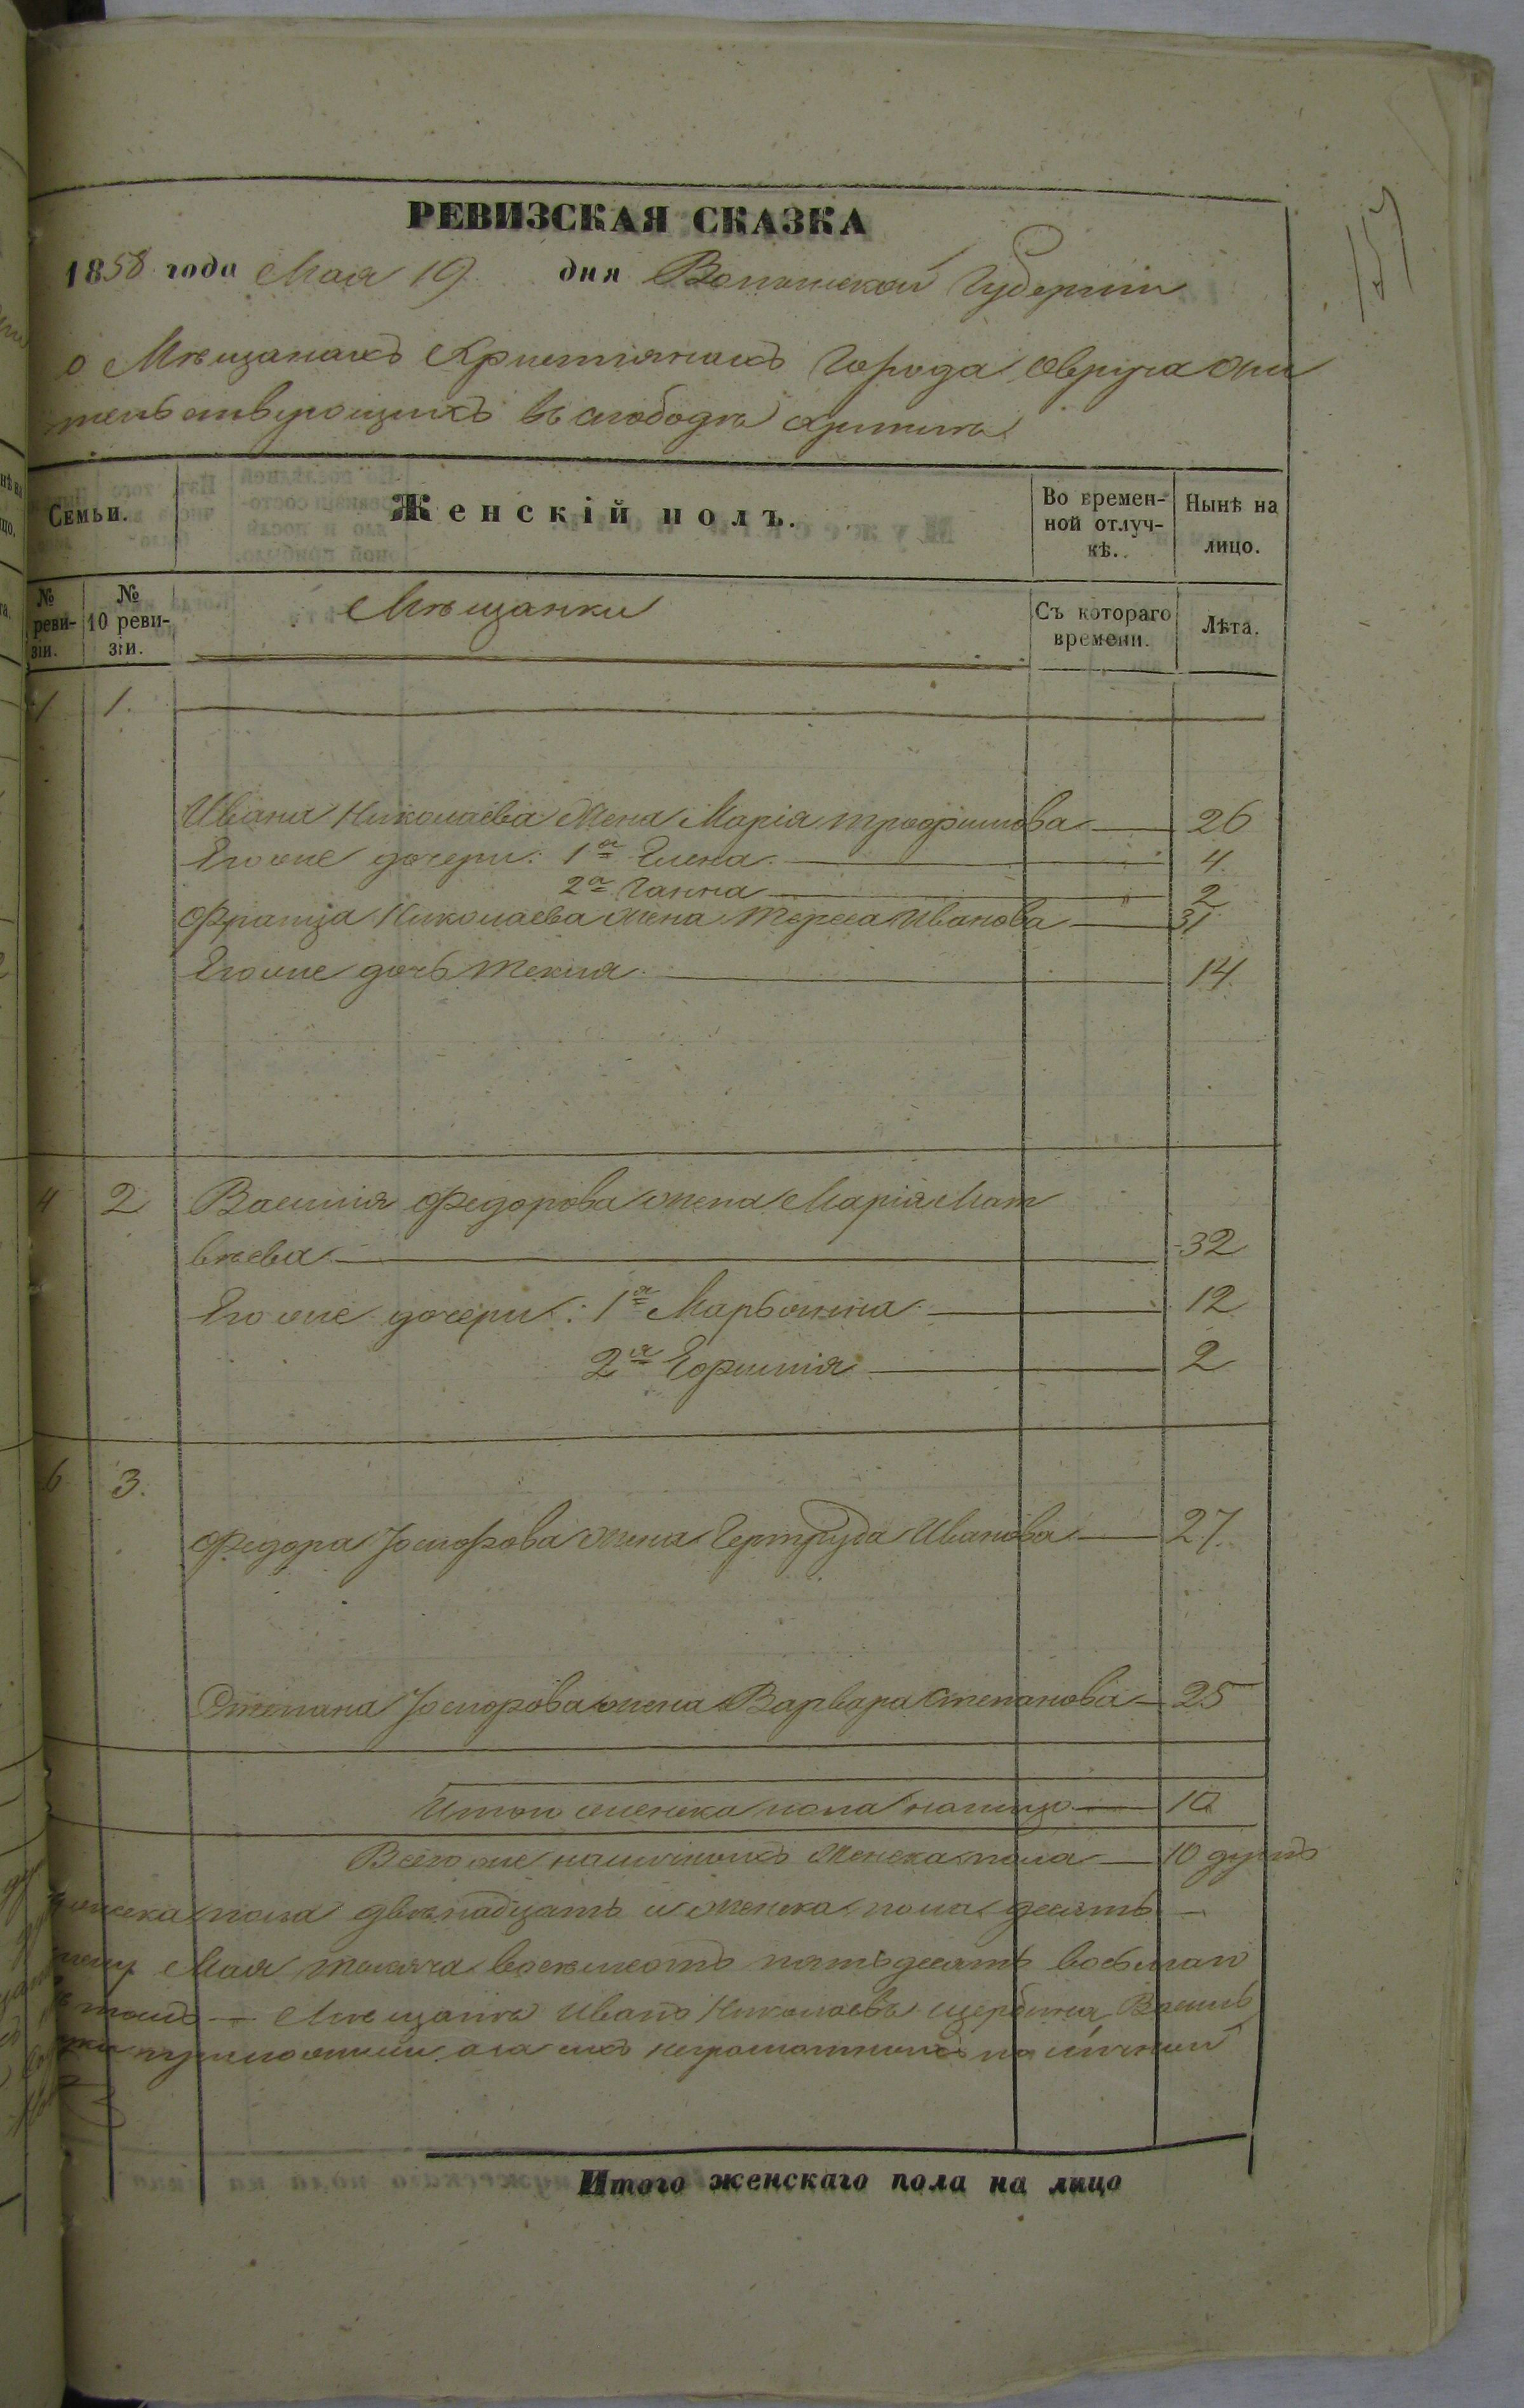 157
РЕВИЗСКАЯ СКАЗКА
1858 года Мая 19 дня Волынской Губерніи
о Мѣщанахъ Христіянахъ Города Овруча Жи
тельствующихъ въ слободѣ
Семьи.
Женскій полъ.
Во времен-
ной отлуч-
кѣ.
Нынѣ на
лицо.
№
реви-
зіи.
№
10 реви-
зіи.
Мѣщанки
Съ котораго
времени.
Лѣта.
1 1.
Ивана Николаева Жена Марія Трофимова 26
Егоже дочери: 1я Елена 4
2я Ганна 2
Франца Николаева жена Тереса Иванова 31
Егоже дочь Текля 14
4 2 Василія Федорова жена Марія Мат
вѣева 32
Егоже дочери: 1я Марьянна 12
2я Ефимія 2
6 3.
Федора Іосифова жена Гертруда Иванова 27
Степана Іосифова жена Варвара Степанова 25
Итого женска пола налицо 10
Всего же наличныхъ Женска пола 10 душъ
пола двѣнадцать и женска пола десять
Мая тысяча восемьсотъ пятьдесятъ восьмаго
Мѣщанѣ Иванъ Николаевъ Щербина Василь
а за ихъ неграмотныхъ по личной
Итого женскаго пола на лицо